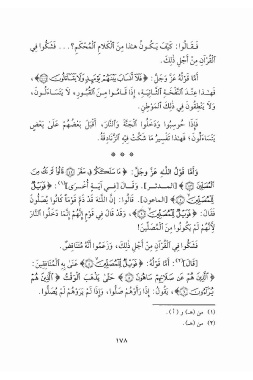 فقالوا: كيف يكون هذا من الكلام المُحكم؟... فشكُّوا في
القرآن من أجل ذلك.
أمّا قوله عزّ وجلّ: ﴿فَلَا أَنسَابَ بَيْنَهُمْ يَوْمَئِذٍ وَلَا يَتَسَاءَلُونَ﴾،
فهذا عند النفخة الثانية، إذا قاموا من القبور، لا يتساءلون،
ولا ينطقون في ذلك الموطن.
فإذا حُوسبوا ودخلوا الجنّة والنار، أقبل بعضهم على بعض
يتساءلون، فهذا تفسير ما شكّت فيه الزنادقة.
* * *
وأمّا قول الله عزّ وجلّ: ﴿مَا سَلَكَكُمْ فِي سَقَرَ قَالُوا لَمْ نَكُ مِنَ
الْمُصَلِّينَ﴾ [المدثر]. وقال [في آية أخرى](١): ﴿فَوَيْلٌ
لِّلْمُصَلِّينَ﴾ [الماعون]. قالوا: إنّ الله قد ذمّ قوماً كانوا يُصلّون
فقال: ﴿فَوَيْلٌ لِّلْمُصَلِّينَ﴾، وقد قال في قوم إنّهم إنّما دخلوا النار
لأنّهم لم يكونوا من المصلّين!
فشكُّوا في القرآن من أجل ذلك، وزعموا أنّه متناقض.
[قال](٢): أمّا قوله: ﴿فَوَيْلٌ لِّلْمُصَلِّينَ﴾ عنى به المنافقين:
﴿الَّذِينَ هُمْ عَن صَلَاتِهِمْ سَاهُونَ﴾ حتى يذهب الوقت ﴿الَّذِينَ هُمْ
يُرَاءُونَ﴾، يقول: إذا رأوهم صلّوا، وإذا لم يروهم لم يُصلّوا.
(١) من (هـ) و (أ).
(٢) من (هـ).
١٧٨